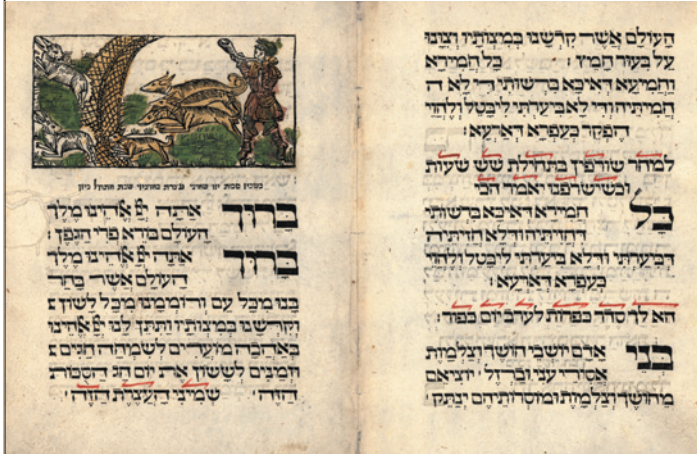 העולם אשר קדשנו במיצותיו וצונו
על בעור חמיץ : כל חמירא
וחמיעא דאיכא ברשותי דילא ה
חמיתיה ודילא ביערתי ליבטל ולהוי
הפקר כעפרא דארעא :
למחר שורפין בתחילת שש שעות
וכשישרפנו יאמר הכי
כל חמירא דאיכא ברשותי
דחזיתיה ודלא חזיתיה
דביערתי ודלא ביערתי ליבטל ולהוי
כעפרא דארעא :
הא לך סדר כפרות לערב יום כפור :
בני אדם יושבי חושך וצלמות
אסירי עני וברזל יוציאם
מחושך וצלמות ומוסרותיהם ינתק
ברוך אתה יי אלהינו מלך
העולם בורא פרי הגפן :
ברוך אתה יי אלהינו מלך
העולם אשר בחר
בנו מכל עם ורוממנו מכל לשון
וקידשנו במיצותיו ותתן לנו יי אלהינו
באהבה מועדים לשמחה חגים
וזמנים לששון את יום חג הסכות
הזה שמיני העצרת הזה